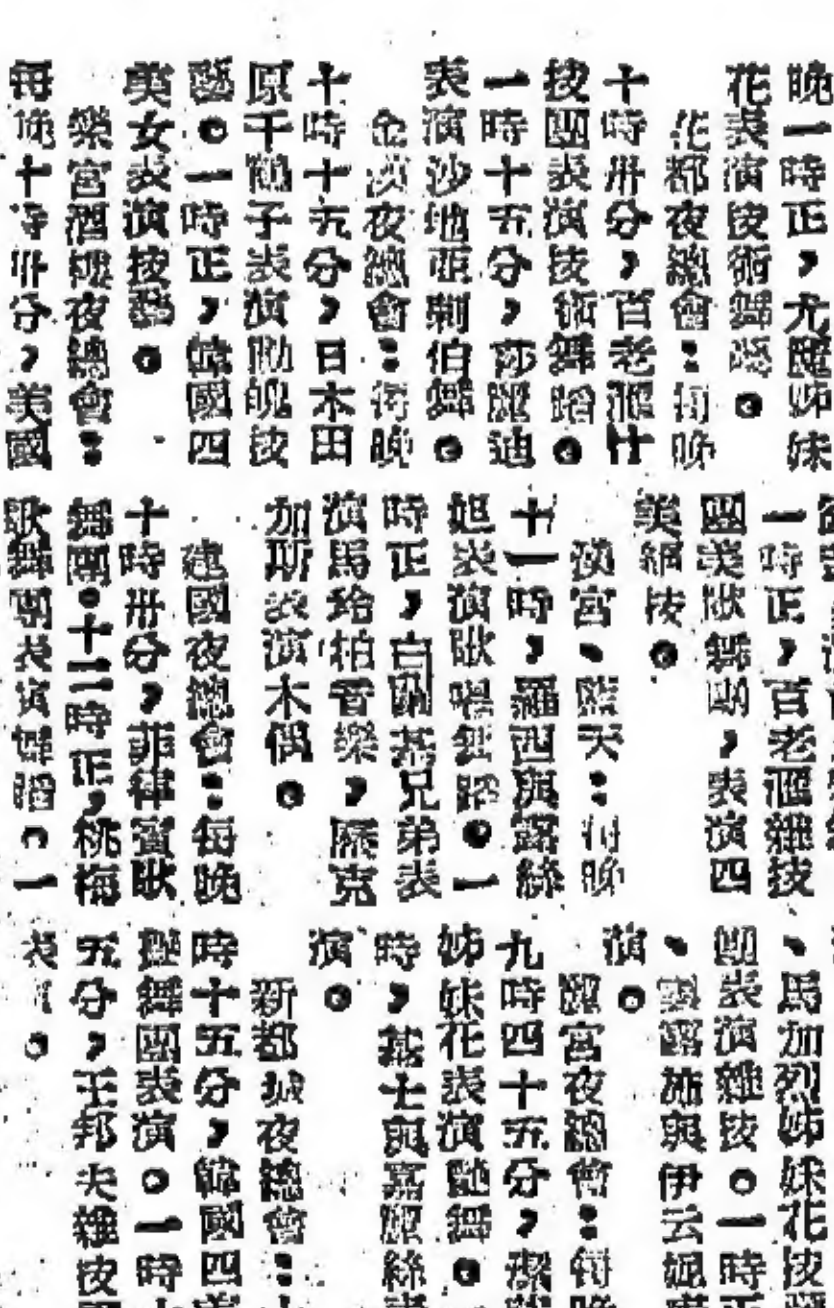 晚一時正，尤麗姊妹
花表演技術舞蹈。
花都夜總會：每晚
十時卅分，百老滙廿
技團表演技術舞蹈。
一時十五分，莎麗迪
表演沙地亞剌伯舞。
金漢夜總會：每晚
十時十五分，日木田
原千鶴子表演勛魄技
藝。一時正，韓國四
美女表演技藝。
樂宮酒樓夜總會：
每晚十時卅分，美國
一時正，百老滙雜技
團美歌舞團，表演四
美綢技。
漢宮、藍天：每晚
十一時，羅西與露絲
妲表演歌唱舞蹈。一
時正，白蘭基兄弟表
演馬鈴柏音樂，
克
加斯表演木偶。
建國夜總會：每晚
十時卅分，菲律賓歌
舞團。十二時正，桃梅
歌舞團表演舞蹈。一
、馬加烈姊妹花技
團表演雜技。一時正
、
露施與伊云妮
演。
麗宮夜總會：每晚
九時四十五分，
姊妹花表演艷舞。
時，
士與嘉麗絲
演。
新都城夜總會：
時十五分，韓國四
舞團表演。一時
五分，王邦夫雜技
表演。